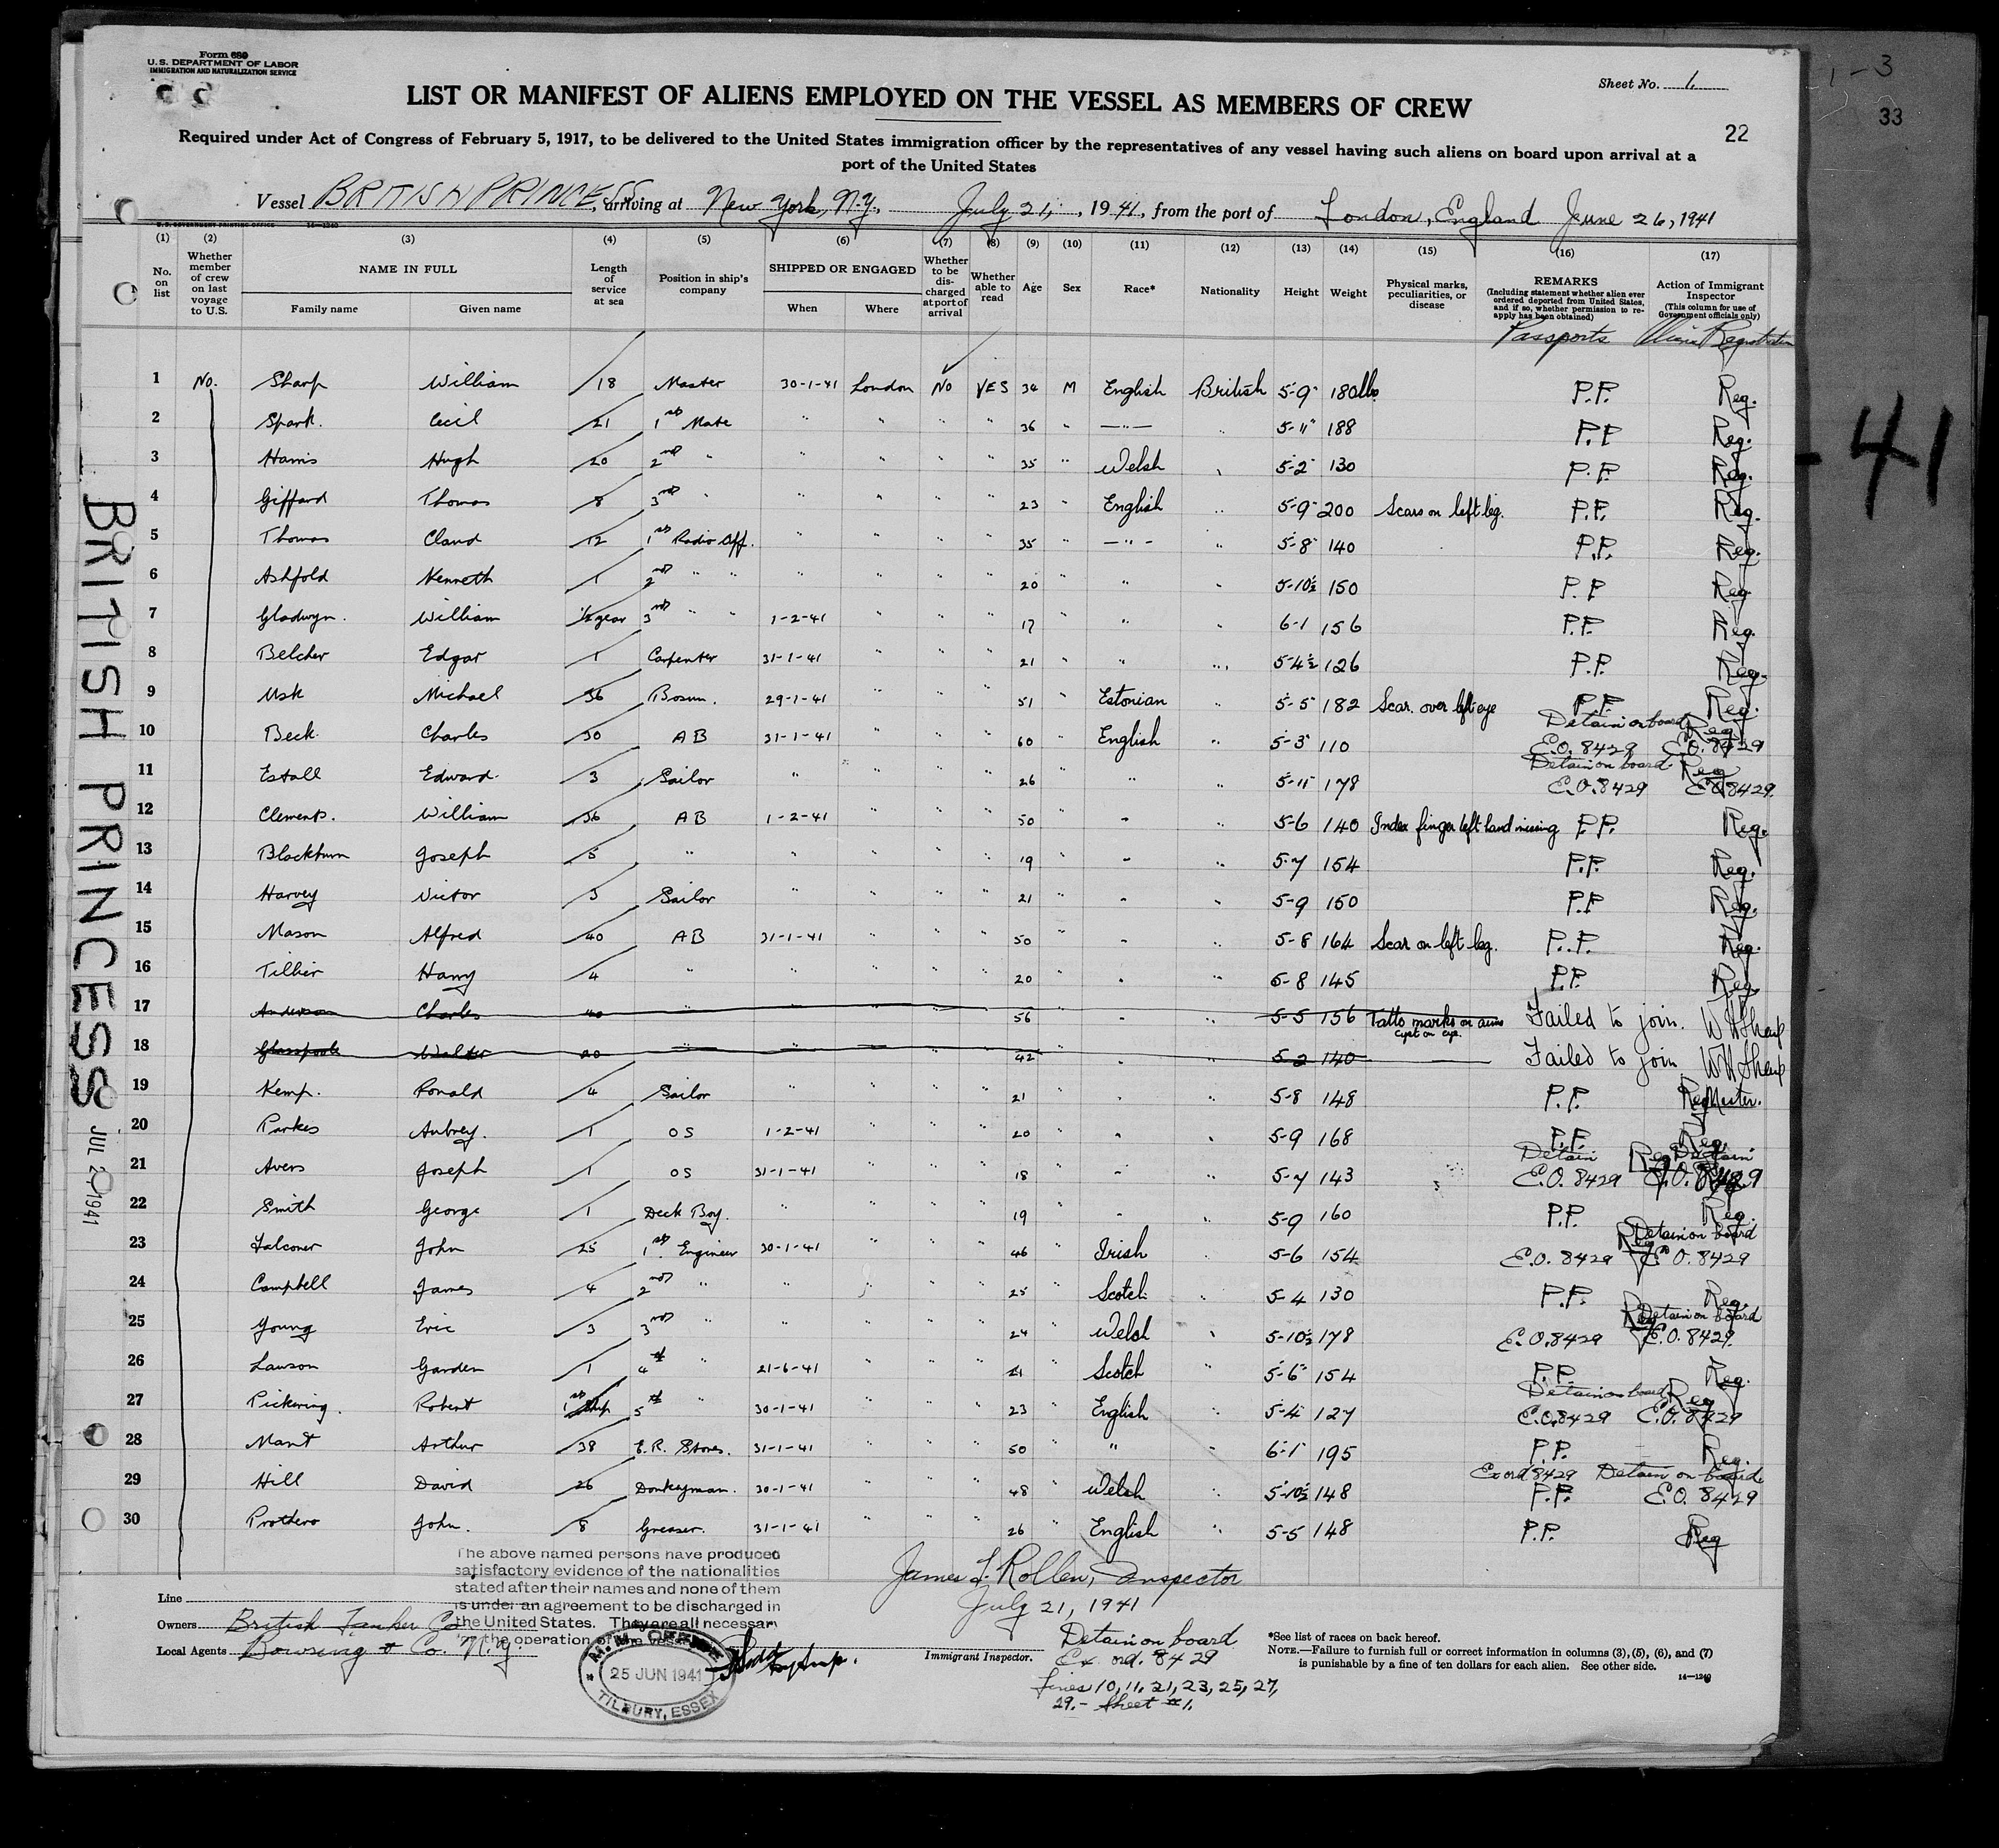 Form 680
U.S. DEPARTMENT OF LABOR
IMMIGRATION AND NATURALIZATION SERVICE
Sheet No. 1
LIST OR MANIFEST OF ALIENS EMPLOYED ON THE VESSEL AS MEMBERS OF CREW
22
33
1-3
-41
Required under Act of Congress of February 5, 1917, to be delivered to the United States immigration officer by the representatives of any vessel having such aliens on board upon arrival at a
port of the United States
Vessel BRITISH PRINCESS, arriving at New York, N.Y., July 21, 1941, from the port of London, England June 26, 1941
U.S. GOVERNMENT PRINTING OFFICE 14—1240
(1) (2) (3) (4) (5) (6) (7) (8) (9) (10) (11) (12) (13) (14) (15) (16) (17)
No. on list
Whether member of crew on last voyage to U.S.
NAME IN FULL
Family name Given name
Length of service at sea
Position in ship's company
SHIPPED OR ENGAGED
When Where
Whether to be discharged at port of arrival
Whether able to read
Age
Sex
Race*
Nationality
Height
Weight
Physical marks, peculiarities, or disease
REMARKS
(Including statement whether alien ever ordered deported from United States, and if so, whether permission to re-apply has been obtained)
Passports
Action of Immigrant Inspector
(This column for use of Government officials only)
Alien Registration
1 No. Sharp William 18 Master 30-1-41 London No YES 34 M English British 5-9 180lbs P.P. Reg.
2 Spark. Cecil 21 1st Mate " " " " 36 " —"— " 5-11 188 P.P Reg.
3 Harris Hugh 20 2nd " " " " " 35 " Welsh " 5-2 130 P.P. Reg.
4 Giffard Thomas 8 3rd " " " " " 23 " English " 5-9 200 Scars on left leg. P.P. Reg.
5 Thomas Claud 12 1st Radio Off. " " " " 35 " —"— " 5-8 140 P.P. Reg.
6 Ashfold Kenneth 1 2nd " " " " " " 20 " " " 5-10½ 150 P.P Reg
7 Gladwyn. William ½ year 3rd " " 1-2-41 " " " 17 " " " 6-1 156 P.P. Reg.
8 Belcher Edgar 1 Carpenter 31-1-41 " " " 21 " " " 5-4½ 126 P.P. Reg.
9 Usk Michael 36 Bosun. 29-1-41 " " " 51 " Estonian " 5-5 182 Scar. over left eye P.P. Reg.
10 Beck Charles 50 AB 31-1-41 " " " 60 " English " 5-3 110 Detain on board E.O. 8429 Reg E.O. 8429
11 Estall Edward 3 Sailor " " " " 26 " " " 5-11 178 Detain on board E.O. 8429 Reg E.O. 8429.
12 Clements. William 36 AB 1-2-41 " " " 50 " " " 5-6 140 Index finger left hand missing P.P. Reg.
13 Blackburn Joseph 5 " " " " " 19 " " " 5-7 154 P.P. Reg.
14 Harvey Victor 3 Sailor " " " " 21 " " " 5-9 150 P.P Reg.
15 Mason Alfred 40 AB 31-1-41 " " " 50 " " " 5-8 164 Scar on left leg. P.P. Reg.
16 Tillier Harry 4 " " " " " 20 " " " 5-8 145 P.P. Reg.
17 Anderson Charles 40 " " " " " 56 " " 5-5 156 Tatto marks on arms cyst on eye. Failed to join. WH Sharp
18 Glasspoole Walter 20 " " " " " 42 " " 5-2 140 Failed to join WH Sharp
19 Kemp. Ronald 4 Sailor " " " " 21 " " " 5-8 148 P.P. Reg Master.
20 Parkes Aubrey. 1 OS 1-2-41 " " " 20 " " " 5-9 168 P.P. Reg.
21 Avers Joseph 1 OS 31-1-41 " " " 18 " " " 5-7 143 Detain E.O. 8429 Reg Detain E.O. 8429
22 Smith George 1 Deck Boy. " " " " 19 " " " 5-9 160 P.P. Reg.
23 Falconer John 25 1st Engineer 30-1-41 " " " 46 " Irish " 5-6 154 E.O. 8429 Reg Detain on board E.O. 8429
24 Campbell James 4 2nd " " " " " 25 " Scotch " 5-4 130 P.P. Reg.
25 Young Eric 3 3rd " " " " " 24 " Welsh " 5-10½ 178 E.O. 8429 Reg Detain on board E.O. 8429.
26 Lawson Garden 1 4th " 21-6-41 " " " 21 " Scotch " 5-6 154 P.P. Reg.
27 Pickering. Robert 1st Ship 5th " 30-1-41 " " " 23 " English " 5-4 127 Detain on board E.O. 8429 Reg E.O. 8429
28 Mant Arthur 38 E.R. Stores. 31-1-41 " " " 50 " " " 6-1 195 P.P. Reg.
29 Hill David 26 Donkeyman. 30-1-41 " " " 48 " Welsh " 5-10½ 148 Ex ord 8429 P.P. Detain on board. E.O. 8429
30 Prothero John. 8 Greaser. 31-1-41 " " " 26 " English " 5-5 148 P.P. Reg
BRITISH PRINCESS JUL 2 1941
The above named persons have produced
satisfactory evidence of the nationalities
stated after their names and none of them
is under an agreement to be discharged in
the United States. They are all necessary
in the operation of the vessel
James F. Rollen, Inspector
July 21, 1941
Line
Owners British Tanker Co
Local Agents Bowring & Co. N.Y.
M.M. OFFICE
25 JUN 1941
TILBURY, ESSEX
Immigrant Inspector.
Detain on board
Ex. ord. 8429
Lines 10, 11, 21, 23, 25, 27,
29.- Sheet #1.
*See list of races on back hereof.
NOTE.—Failure to furnish full or correct information in columns (3), (5), (6), and (7)
is punishable by a fine of ten dollars for each alien. See other side.
14—1240